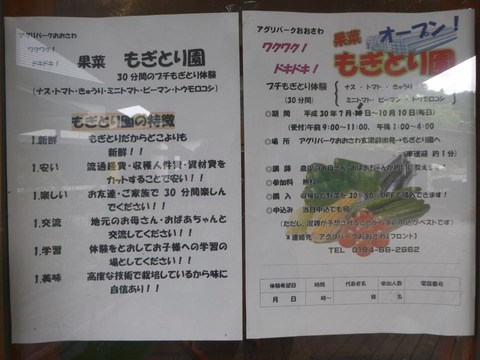 アグリパークおおさわ
ワクワク!
ドキドキ!
果菜 もぎとり園
30分間のプチもぎとり体験
(ナス・トマト・きゅうり・ミニトマト・ピーマン・トウモロコシ)
もぎとり園の特徴
1.新鮮 もぎとりだからどこよりも
新鮮!!
1.安い 流通経費・収穫人件費・資材費を
カットすることで安い!!
1.楽しい お友達・ご家族で30分間楽しん
でください!!
1.交流 地元のお母さん・おばあちゃんと
交流してください!!
1.学習 体験をとおしてお子様への学習の
場としてください!!
1.美味 高度な技術で栽培しているから味に
自信あり!!
アグリパークおおさわ
ワクワク!
ドキドキ!
果菜 もぎとり園
オープン!
プチもぎとり体験
(30分間)
ナス ・ トマト ・ きゅうり
ミニトマト・ ピーマン ・ トウモロコシ
◎期 間 平成30年7月 日〜10月10日(毎日)
(受付)午前9:00〜11:00、午後1:00〜4:00
◎場 所 アグリパークおおさわ玄関前出発→もぎとり園へ
(車運転 約1分)
◎講 師 農園のお母さん・おばあちゃんが
◎参加料 無料
◎購 入 収穫した野菜を
◎申込み 当日申込でも可
(ただし、混雑が予想され
ベストです)
※連絡先 アグリパークおおさわ(フロント)
TEL 0194-68-2662
体験希望日 時間 代表者名 参加人数 電話番号
月 日 時〜 様 名